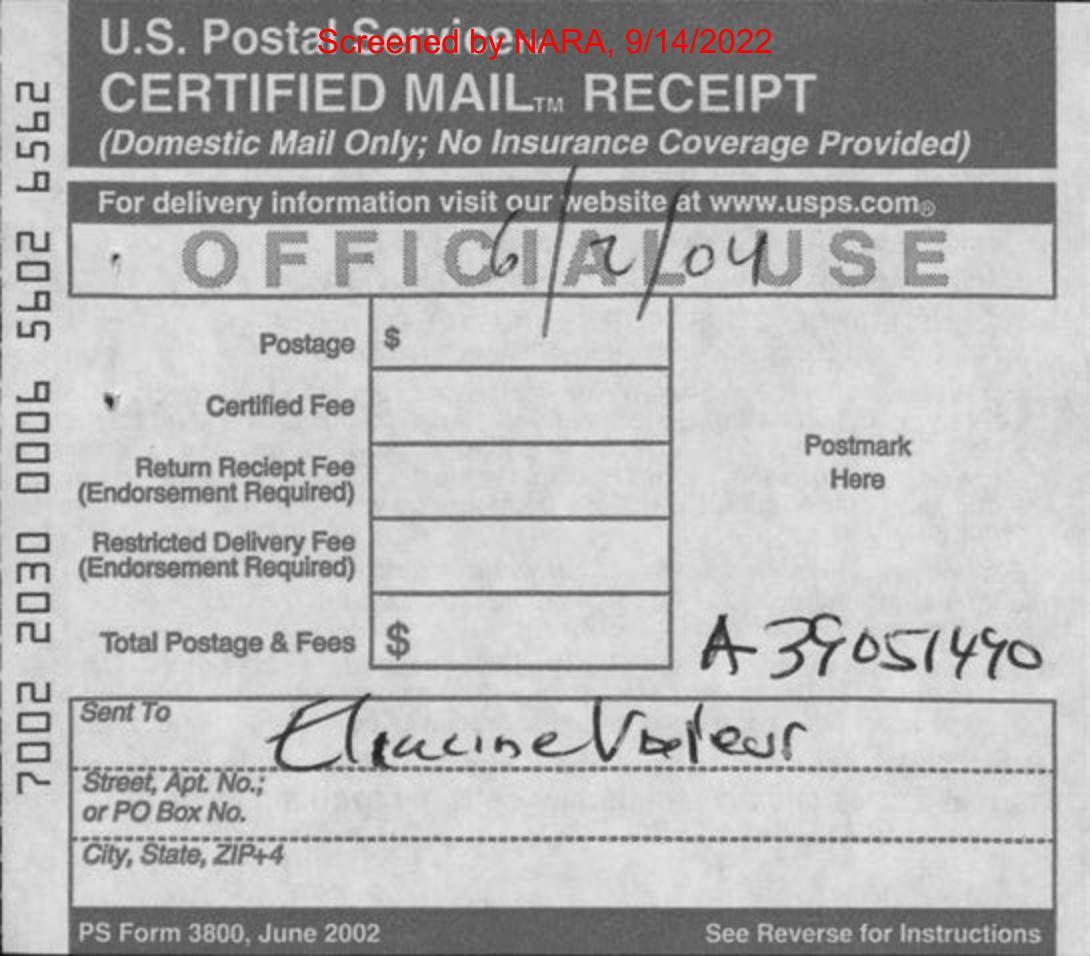 U.S. Postal Service™
Screened by NARA, 9/14/2022
CERTIFIED MAIL™ RECEIPT
(Domestic Mail Only; No Insurance Coverage Provided)
For delivery information visit our website at www.usps.com®
OFFICIAL USE
6/2/04
Postage $
Certified Fee
Return Reciept Fee
(Endorsement Required)
Postmark
Here
Restricted Delivery Fee
(Endorsement Required)
Total Postage & Fees $
A 39051490
Sent To
Street, Apt. No.;
or PO Box No.
City, State, ZIP+4
PS Form 3800, June 2002 See Reverse for Instructions
7002 2030 0006 5602 6562